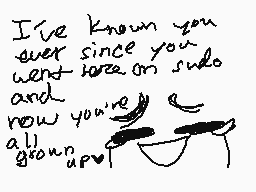 I've known you
ever since you
went on sudo
and
now you're
all
grown
up♥